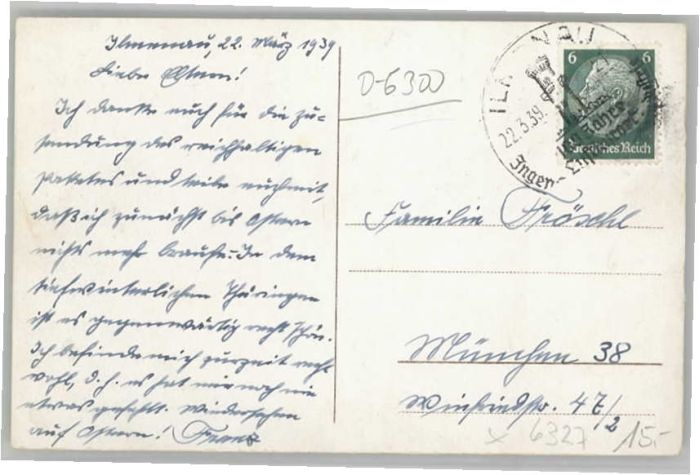 Ilmenau, 22. März 1939
Liebe Eltern!
Ich danke euch für die Zu-
sendung des reichhaltigen
Paketes und teile euch mit,
daß ich zunächst bis Ostern
nichts mehr brauche. In dem
tiefwinterlichen Thüringen
ist es gegenwärtig recht schön.
Ich befinde mich zurzeit recht
wohl, d. h. es hat mir noch nie
etwas gefehlt. Wiedersehen
auf Ostern! Franz
D-6300
6 6
Deutsches Reich
22.3.39.
Familie Fröschl
München 38
Winfriedstr. 47/2
x 6327 15,-